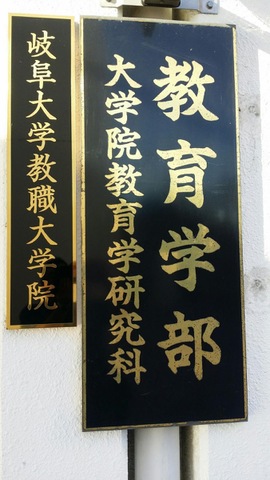 教育学部
大学院教育学研究科
岐阜大学教職大学院